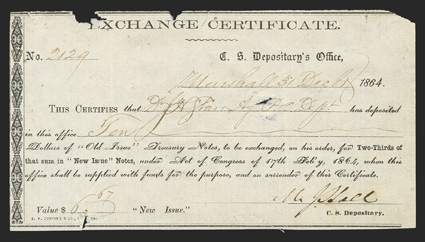 EXCHANGE CERTIFICATE.
No. 2129 C. S. Depositary's Office,
Marshall 31 Dec 1864.
THIS CERTIFIES that has deposited
in this office Ten
Dollars of "Old Issue" Treasury Notes, to be exchanged, on his order, for Two-Thirds of
that sum in "New Issue" Notes, under Act of Congress of 17th Feb'y, 1864, when this
office shall be supplied with funds for the purpose, and on surrender of this Certificate.
Value $ 6.67 "New Issue."
C. S. Depositary.